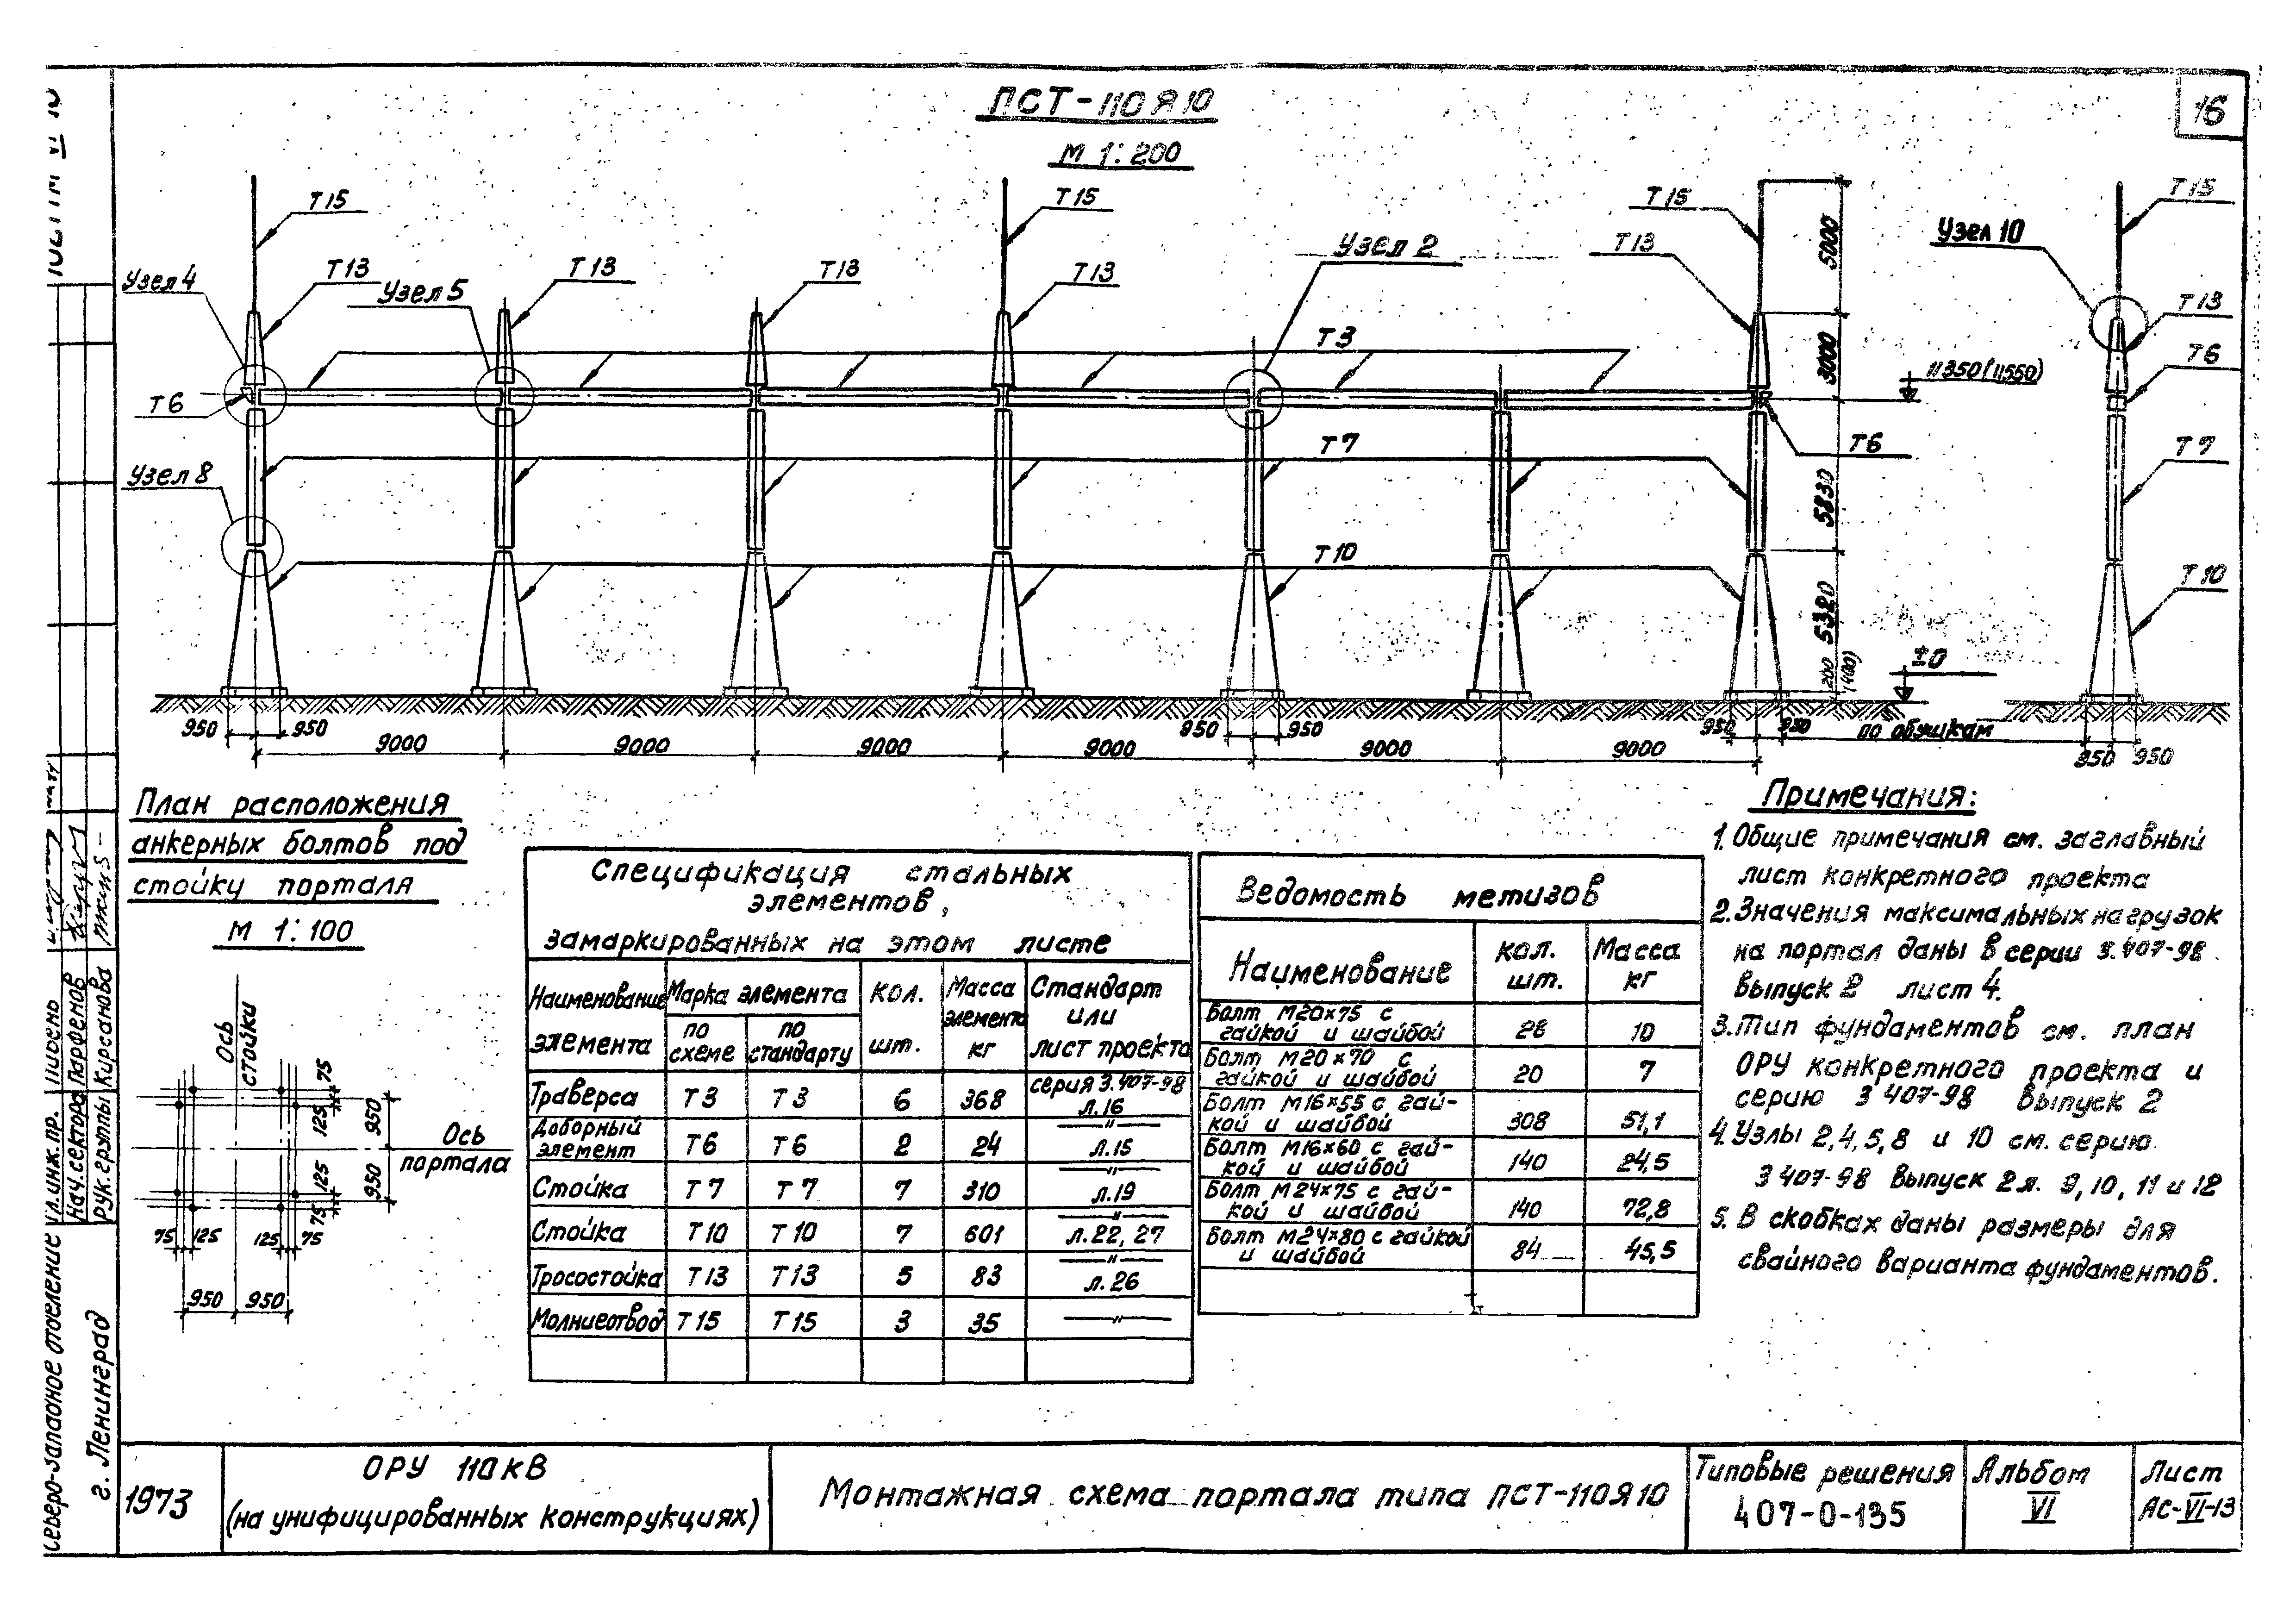 ПСТ-110Я10
16
М 1:200
Т15
Т15
Т15
Т15
Узел 4
Т13
Узел 5
Т13
Т13
Т13
Узел 2
Т13
Узел 10
Т13
5000
3000
Т3
11350(11550)
Т6
Т6
Т6
Узел 8
Т7
Т7
5830
Т10
Т10
5320
200
(400)
±0
950
950
9000
9000
9000
9000
950
950
9000
9000
950
950
по обушкам
950
950
План расположения
анкерных болтов под
стойку портала
М 1:100
Ось
стойки
75
125
950
Ось
портала
125
75
950
75
125
125
75
950
950
Спецификация стальных
элементов,
замаркированных на этом листе
Наименование элемента | Марка элемента | кол. шт. | Масса элемента кг | Стандарт или лист проекта
по схеме | по стандарту
Траверса | Т3 | Т3 | 6 | 368 | серия 3.407-98 л.16
Доборный элемент | Т6 | Т6 | 2 | 24 | —"— л.15
Стойка | Т7 | Т7 | 7 | 310 | —"— л.19
Стойка | Т10 | Т10 | 7 | 601 | —"— л.22, 27
Тросостойка | Т13 | Т13 | 5 | 83 | —"— л.26
Молниеотвод | Т15 | Т15 | 3 | 35 | —"—
Ведомость метизов
Наименование | кол. шт. | Масса кг
Болт М20×75 с гайкой и шайбой | 28 | 10
Болт М20×70 с гайкой и шайбой | 20 | 7
Болт М16×55 с гай-кой и шайбой | 308 | 51,1
Болт М16×60 с гай-кой и шайбой | 140 | 24,5
Болт М24×75 с гай-кой и шайбой | 140 | 72,8
Болт М24×80 с гайкой и шайбой | 84 | 45,5
Примечания:
1. Общие примечания см. заглавный
лист конкретного проекта
2. Значения максимальных нагрузок
на портал даны в серии 3.407-98
выпуск 2 лист 4.
3. Тип фундаментов см. план
ОРУ конкретного проекта и
серию 3 407-98 выпуск 2
4. Узлы 2,4,5,8 и 10 см. серию
3 407-98 выпуск 2 л. 9, 10, 11 и 12
5. В скобках даны размеры для
свайного варианта фундаментов.
Северо-западное отделение
г. Ленинград
Гл.инж.пр.
Нач.сектора Парфенов
Рук.группы Кирсанова
1973
ОРУ 110кВ
(на унифицированных конструкциях)
Монтажная схема портала типа ПСТ-110Я10
Типовые решения
407-0-135
Альбом
VI
Лист
АС-VI-13